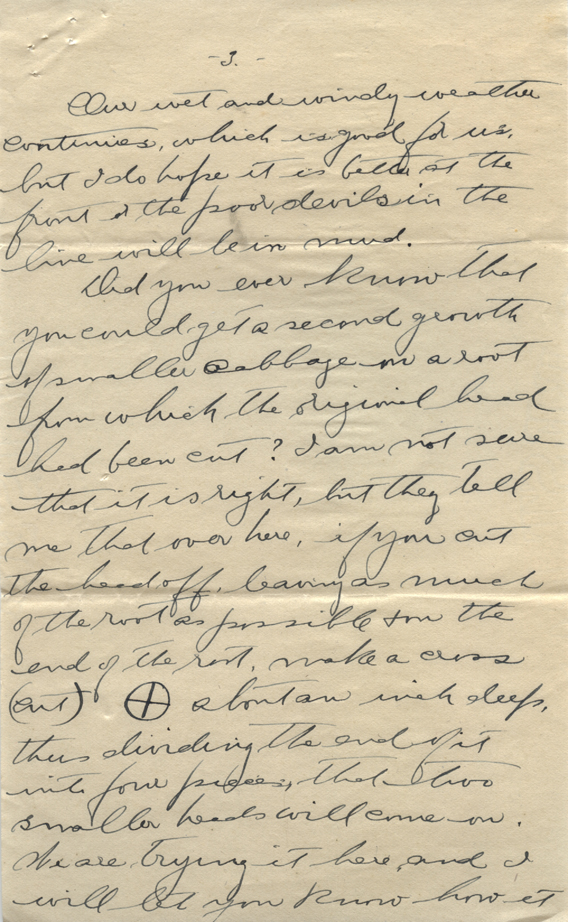 -3.-
Our wet and windy weather
continues, which is good for us,
but I do hope it is better at the
front or the poor devils in the
line will be in mud.
Did you ever know that
you could get a second growth
of smaller cabbage on a root
from which the original head
had been cut? I am not sure
that it is right, but they tell
me that over here, if you cut
the head off, leaving as much
of the root as possible & on the
end of the root, make a cross
(cut) ⊕ about an inch deep,
thus dividing the end of it
into four pieces, that two
smaller heads will come on.
We are trying it here, and I
will let you know how it